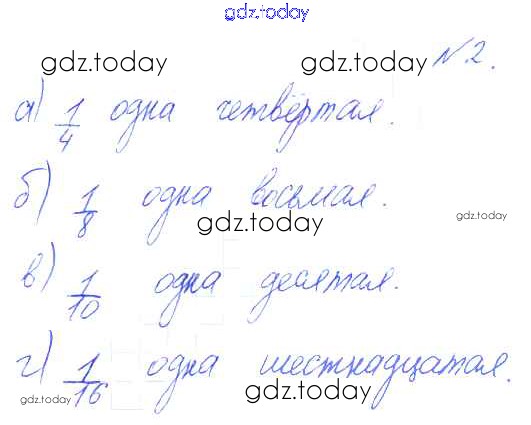 gdz.today
gdz.today gdz.today №2.
а) 1/4 одна четвёртая.
б) 1/8 одна восьмая.
gdz.today gdz.today
в) 1/10 одна десятая.
г) 1/16 одна шестнадцатая.
gdz.today gdz.today